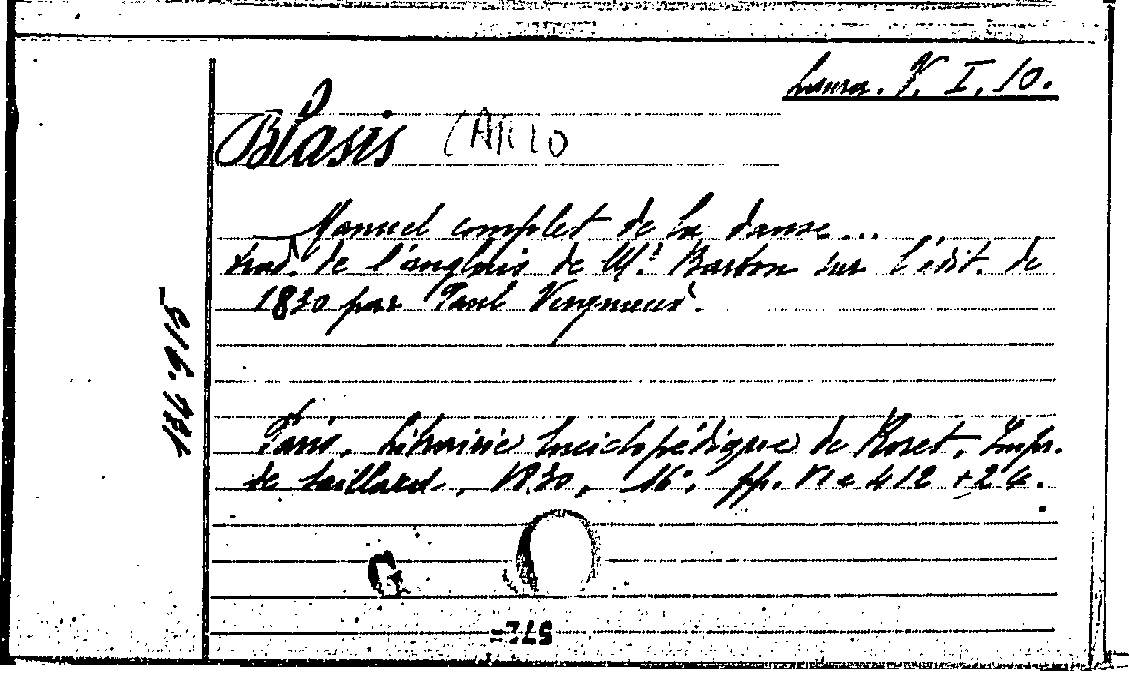 Laura. V. I. 10.
Blasis CARLO
Manuel complet de la danse...
trad. de l'anglais de M.r Barton sur l'édit. de
1830 par Paul Vergnaud.
Paris, Librairie Enciclopédique de Roret, Impr.
de Taillard, 1830, 16°, pp. VI e 412 + 24.
184915
G